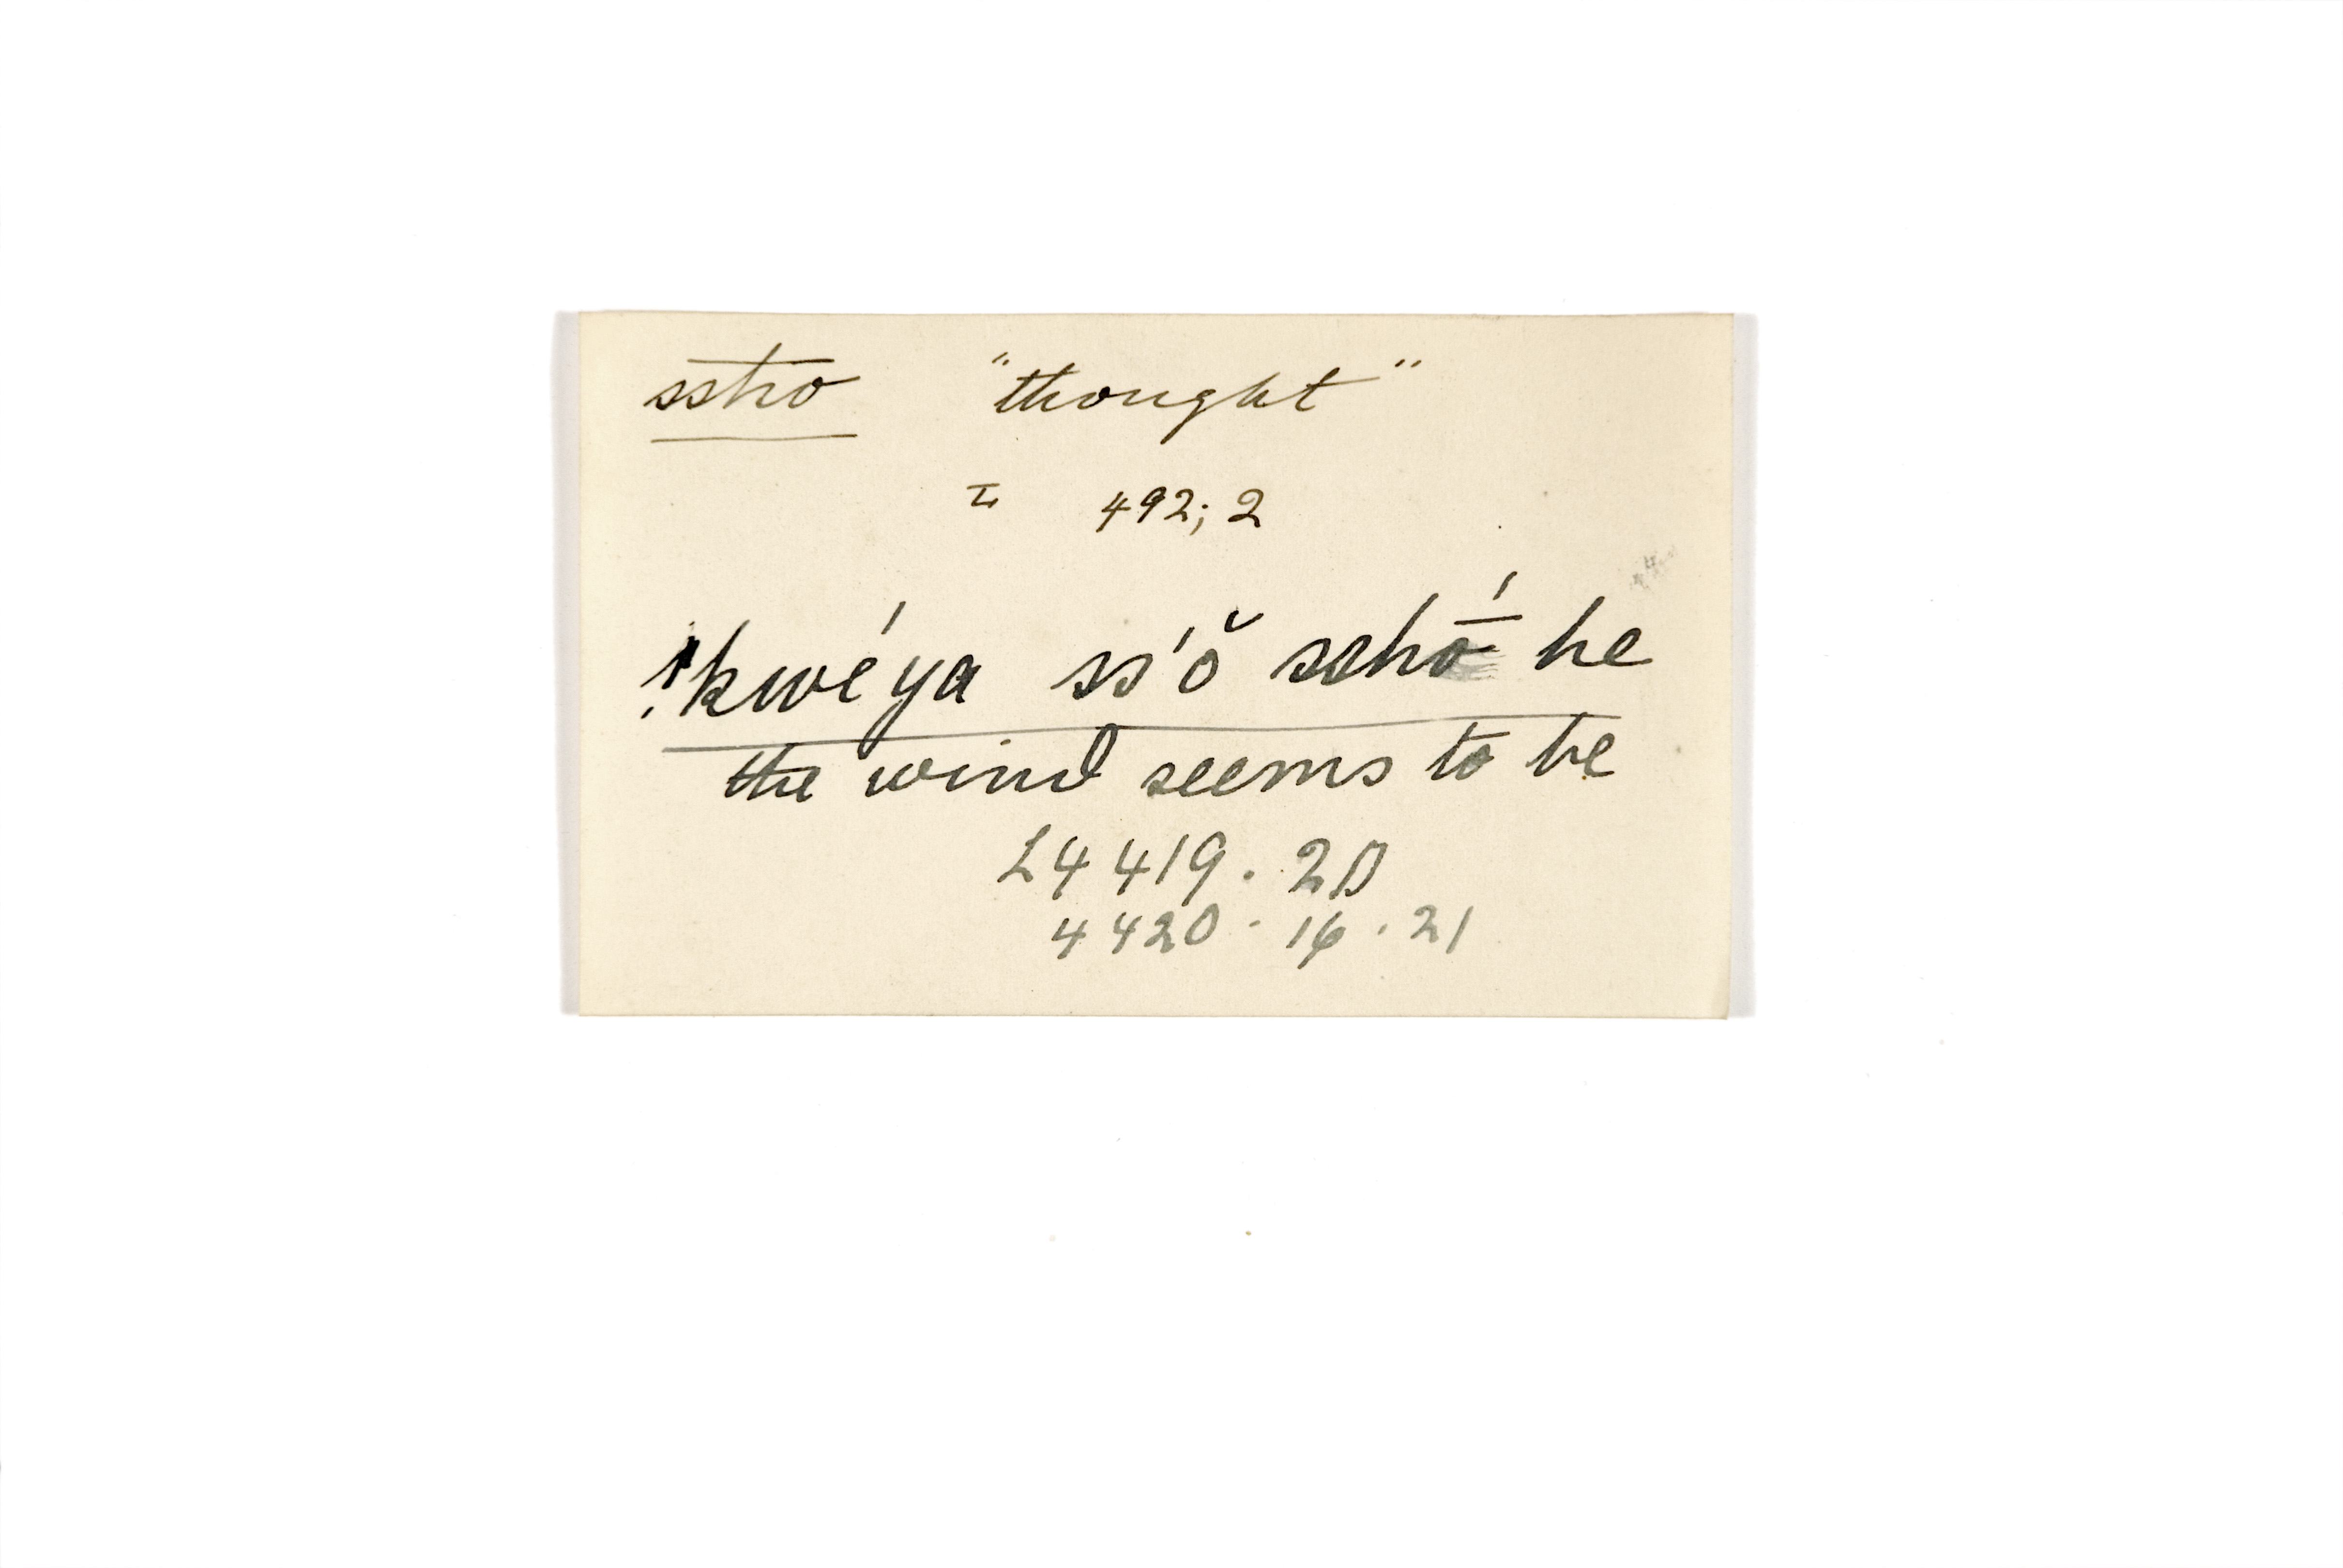 ssho "thought"
I 492; 2
!kwé ya ss'ŏ sshṓ he
the wind seems to be
L4 4419. 20
4420. 16. 21